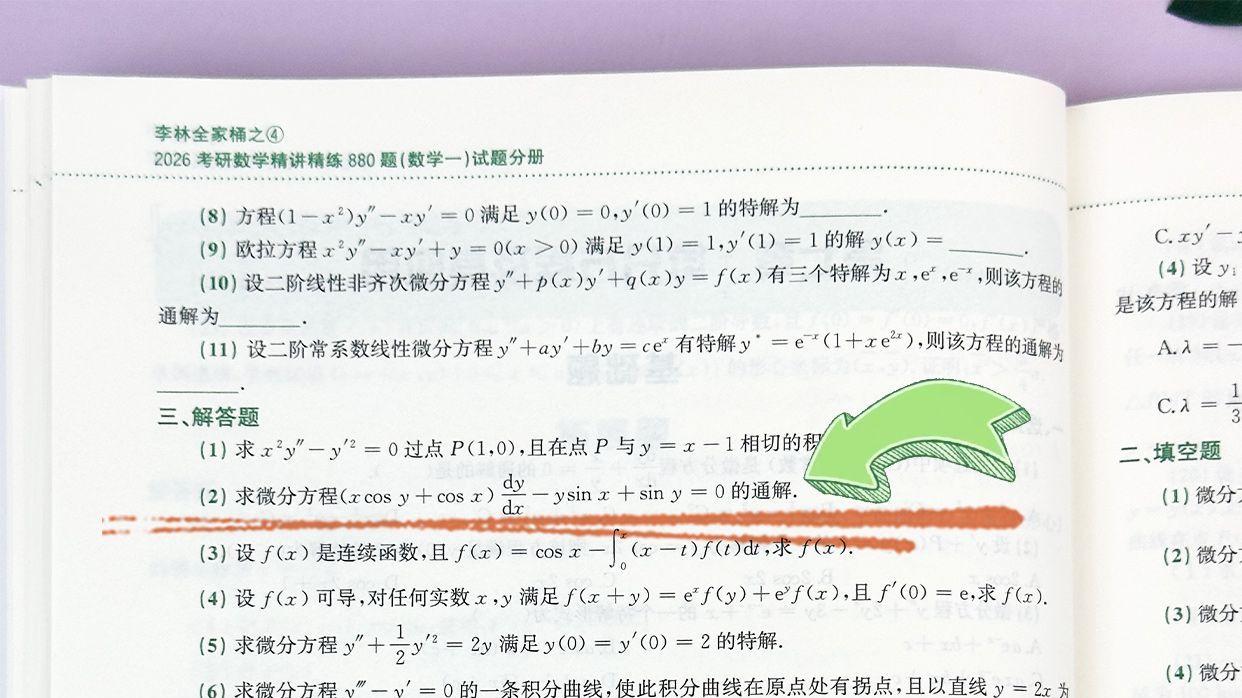 李林全家桶之④
2026 考研数学精讲精练 880 题(数学一)试题分册
(8) 方程(1－x²)y″－xy′＝0 满足 y(0)＝0,y′(0)＝1 的特解为________.
(9) 欧拉方程 x²y″－xy′＋y＝0(x＞0) 满足 y(1)＝1,y′(1)＝1 的解 y(x)＝________.
(10) 设二阶线性非齐次微分方程 y″＋p(x)y′＋q(x)y＝f(x) 有三个特解为 x,eˣ,e⁻ˣ,则该方程的
通解为________.
(11) 设二阶常系数线性微分方程 y″＋ay′＋by＝ceˣ 有特解 y*＝e⁻ˣ(1＋xe²ˣ),则该方程的通解为
________.
三、解答题
(1) 求 x²y″－y′²＝0 过点 P(1,0),且在点 P 与 y＝x－1 相切的积
(2) 求微分方程(xcos y＋cos x) dy/dx －ysin x＋sin y＝0 的通解.
(3) 设 f(x) 是连续函数,且 f(x)＝cos x－∫₀ˣ(x－t)f(t)dt,求 f(x).
(4) 设 f(x) 可导,对任何实数 x,y 满足 f(x＋y)＝eˣf(y)＋eʸf(x),且 f′(0)＝e,求 f(x).
(5) 求微分方程 y″＋1/2 y′²＝2y 满足 y(0)＝y′(0)＝2 的特解.
(6) 求微分方程 y‴－y′＝0 的一条积分曲线,使此积分曲线在原点处有拐点,且以直线 y＝2x 为
C. xy′－
(4) 设 y₁
是该方程的解
A. λ＝
C. λ＝1/3
二、填空题
(1) 微分方
(2) 微分
(3) 微分
(4) 微分